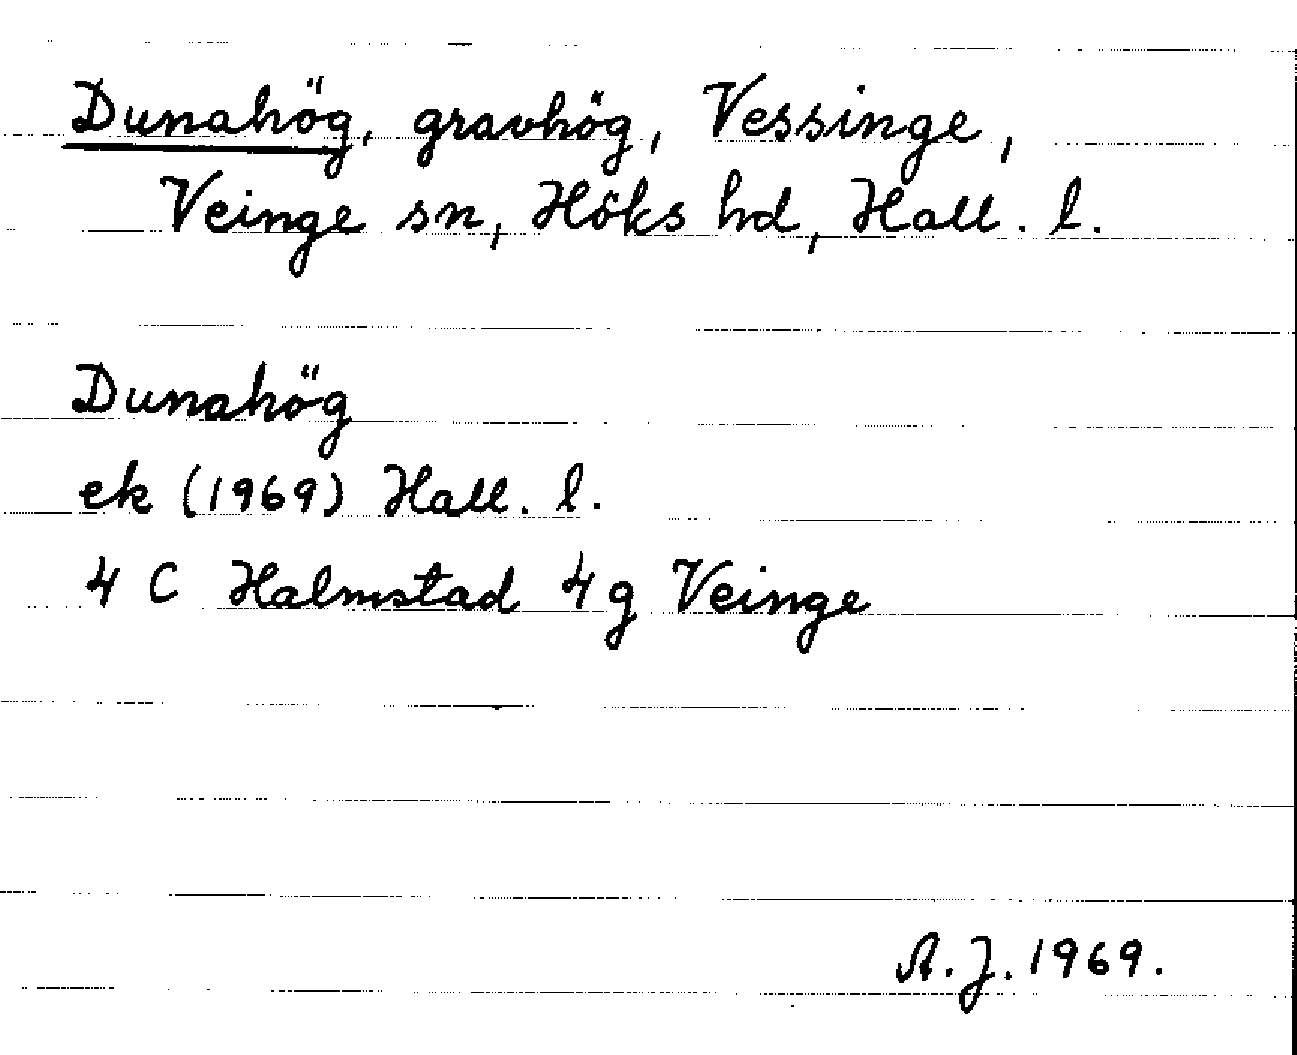 Dunahög, gravhög, Vessinge,
Veinge sn, Höks hd, Hall. l.
Dunahög
ek (1969) Hall. l.
4 C Halmstad 4 g Veinge
A.J. 1969.